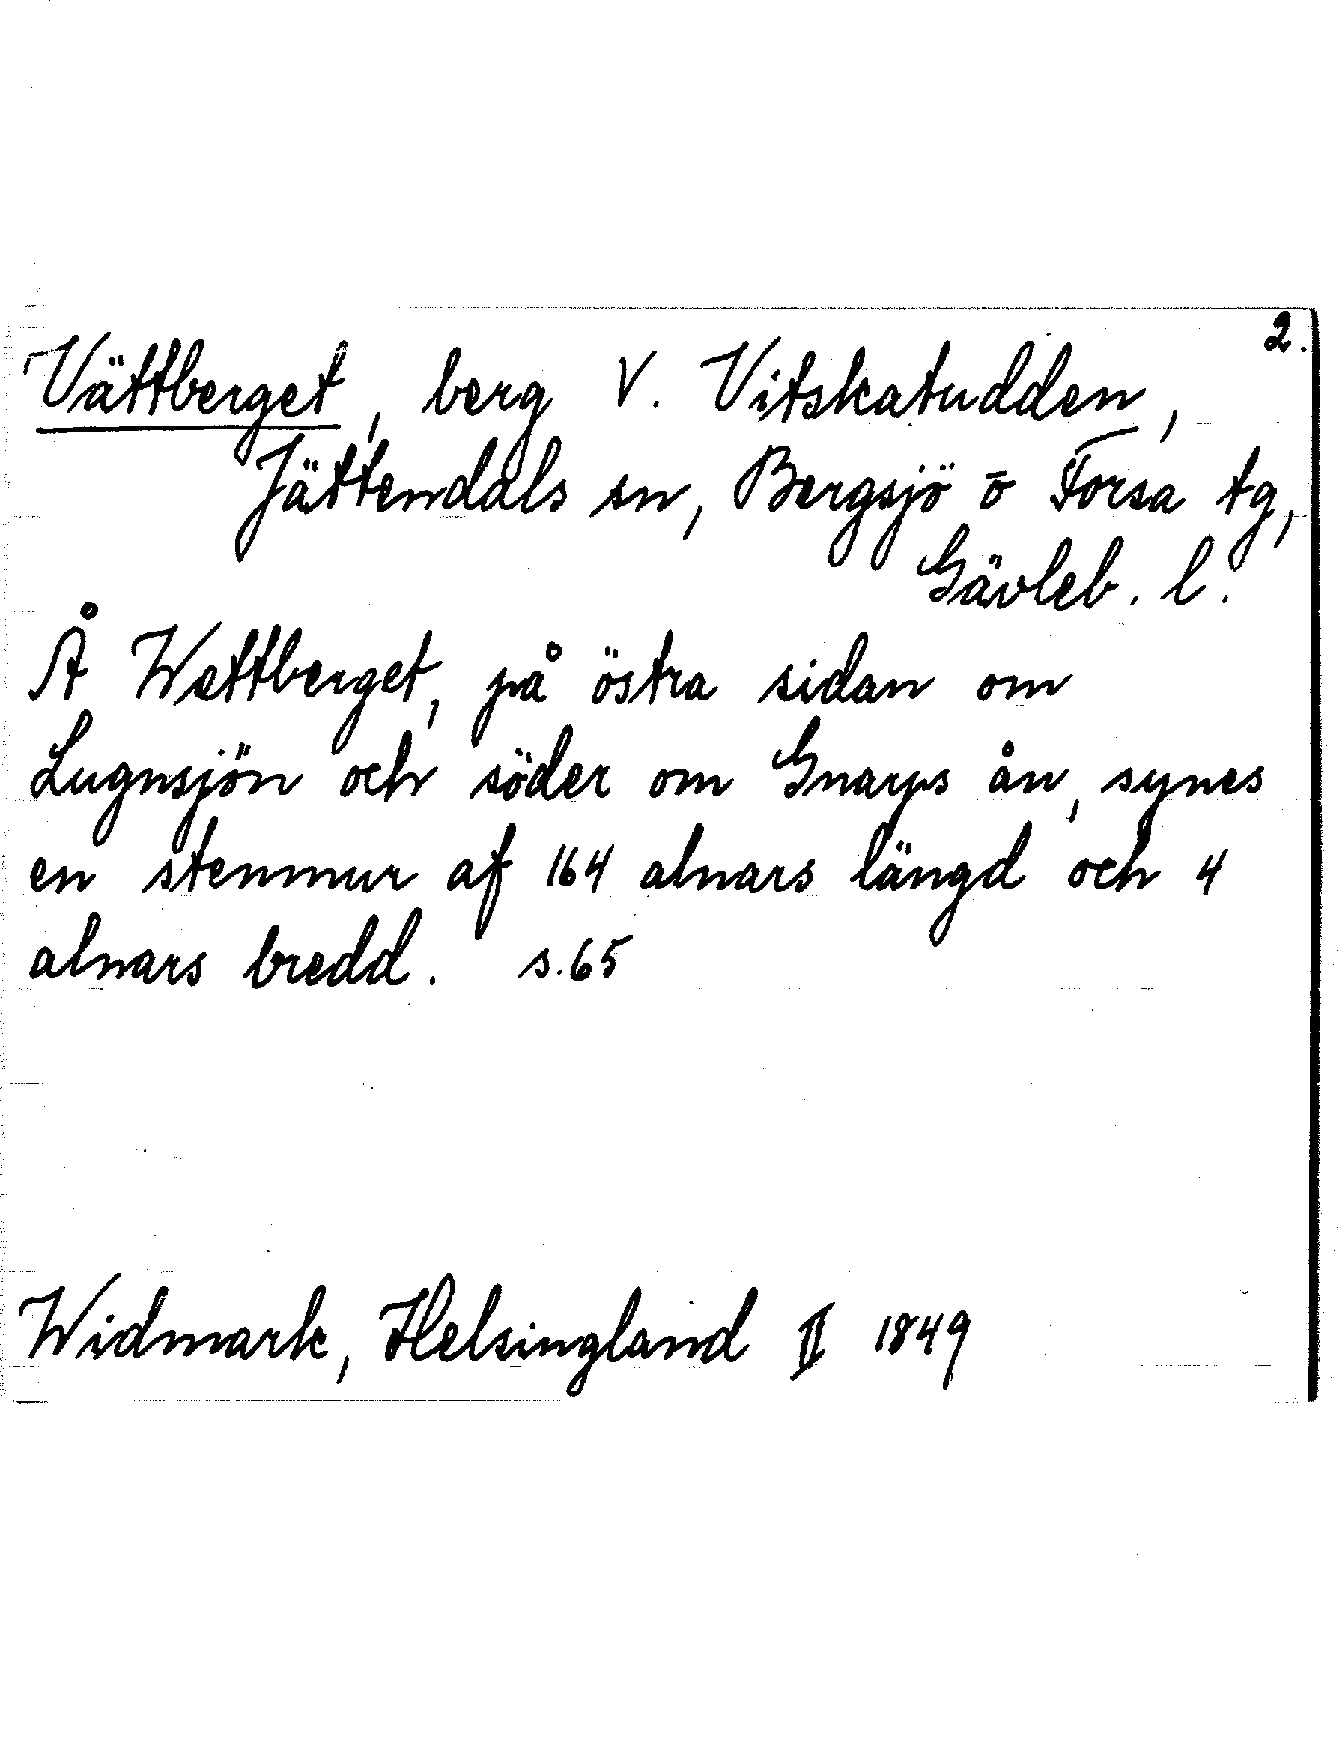 2.
Vättberget, berg V. Vitskatudden,
Jättendals sn, Bergsjö o Forsa tg,
Gävleb. l.
Å Wettberget, på östra sidan om
Lugnsjön och söder om Gnarps ån, synes
en stenmur af 164 alnars längd och 4
alnars bredd. s.65
Widmark, Helsingland II 1849